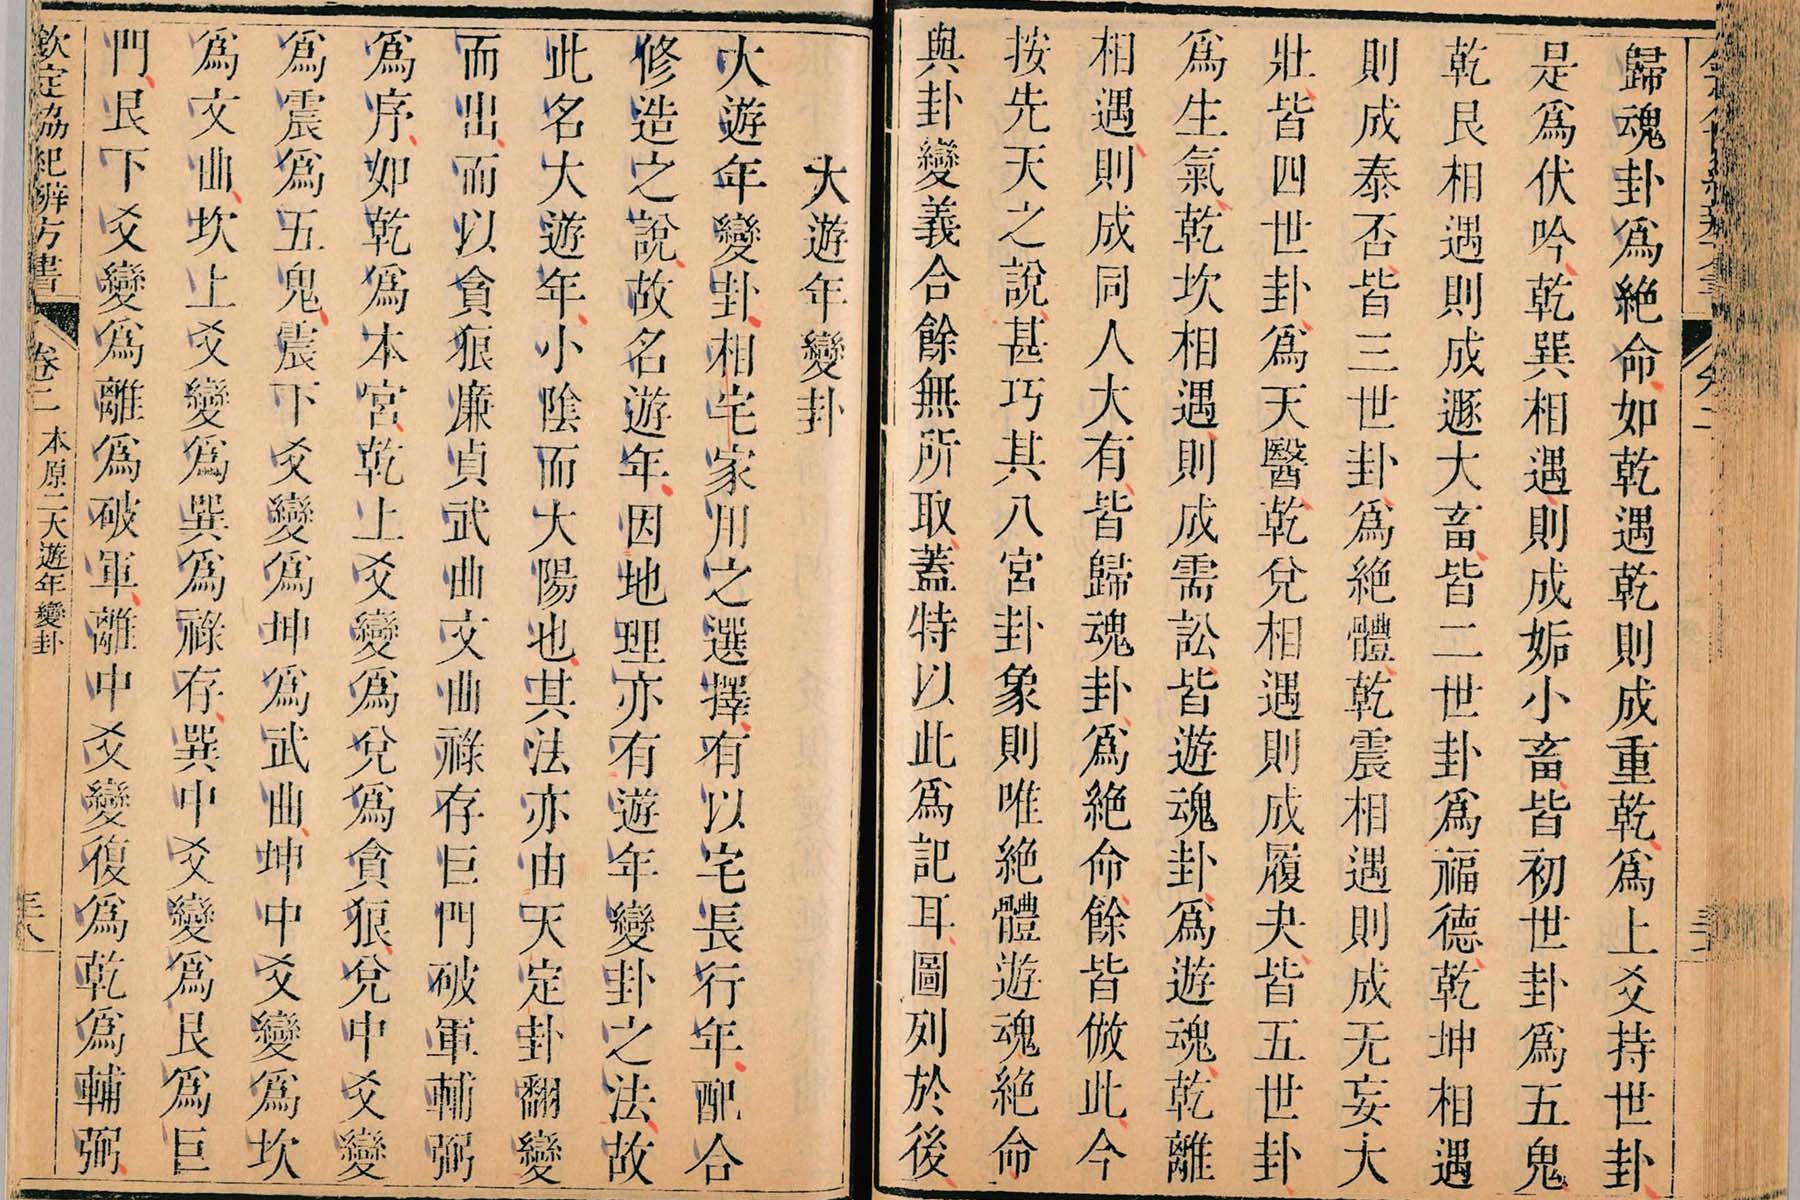 歸魂卦爲絕命如乾遇乾則成重乾爲上爻持世卦
是爲伏吟乾巽相遇則成姤小畜皆初世卦爲五鬼
乾艮相遇則成遯大畜皆二世卦爲福德乾坤相遇
則成泰否皆三世卦爲絕體乾震相遇則成无妄大
壯皆四世卦爲天醫乾兌相遇則成履夬皆五世卦
爲生氣乾坎相遇則成需訟皆遊魂卦爲遊魂乾離
相遇則成同人大有皆歸魂卦爲絕命餘皆倣此今
按先天之說甚巧其八宮卦象則唯絕體遊魂絕命
與卦變義合餘無所取蓋特以此爲記耳圖列於後
大遊年變卦
大遊年變卦相宅家用之選擇有以宅長行年配合
修造之說故名遊年因地理亦有遊年變卦之法故
此名大遊年小陰而大陽也其法亦由天定卦翻變
而出而以貪狼廉貞武曲文曲祿存巨門破軍輔弼
爲序如乾爲本宮乾上爻變爲兌爲貪狼兌中爻變
爲震爲五鬼震下爻變爲坤爲武曲坤中爻變爲坎
爲文曲坎上爻變爲巽爲祿存巽中爻變爲艮爲巨
門艮下爻變爲離爲破軍離中爻變復爲乾爲輔弼
欽定協紀辨方書 卷二 本原二大遊年變卦 三八